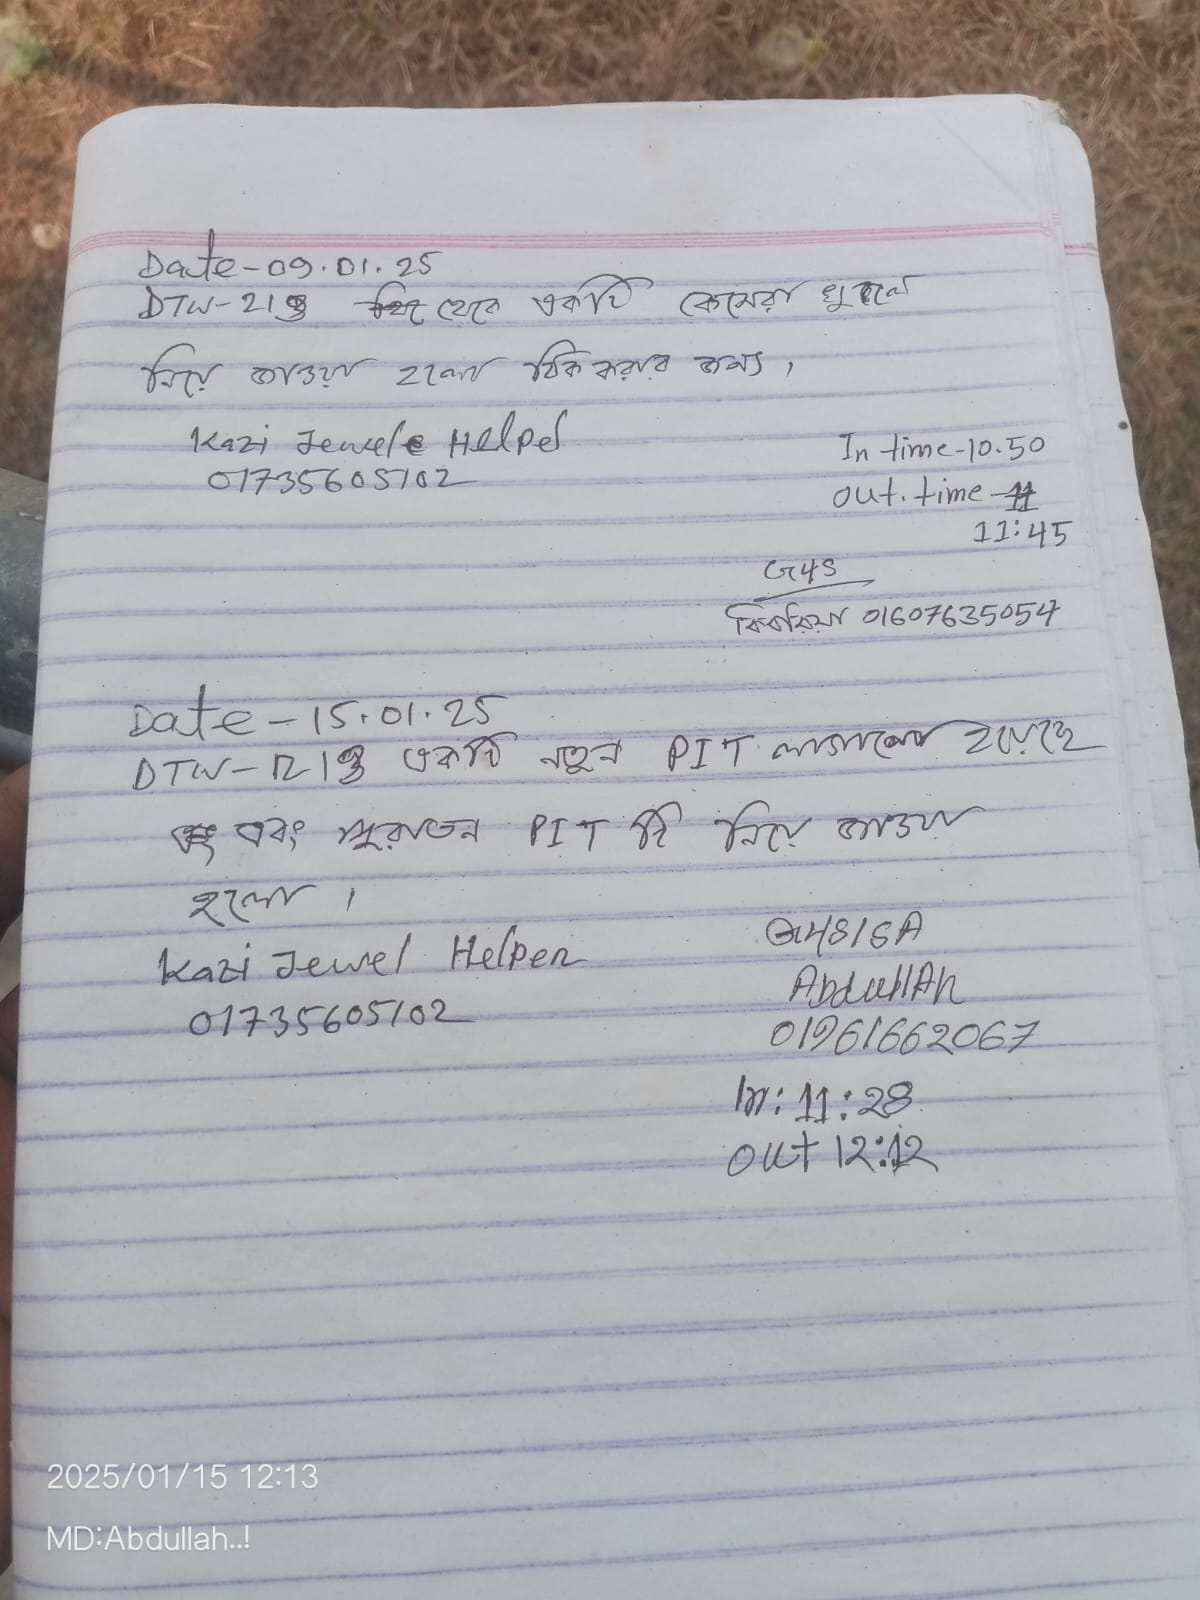 Date-09.01.25
DTW-21 থেকে একটি কেমেরা খুলে
নিয়ে জাওয়া হলো ঠিক করার জন্য,
Kazi Jewel Helper
01735605102
In time-10.50
out.time-
11:45
G4S
কিবরিয়া 01607635054
Date-15.01.25
DTW- একটি নতুন PIT লাগানো হয়েছে
এবং পুরাতন PIT টি নিয়ে জাওয়া
হলো।
Kazi Jewel Helper
01735605102
G4S/SA
AbdullAh
01961662067
In: 11:28
out 12:12
2025/01/15 12:13
MD:Abdullah..!